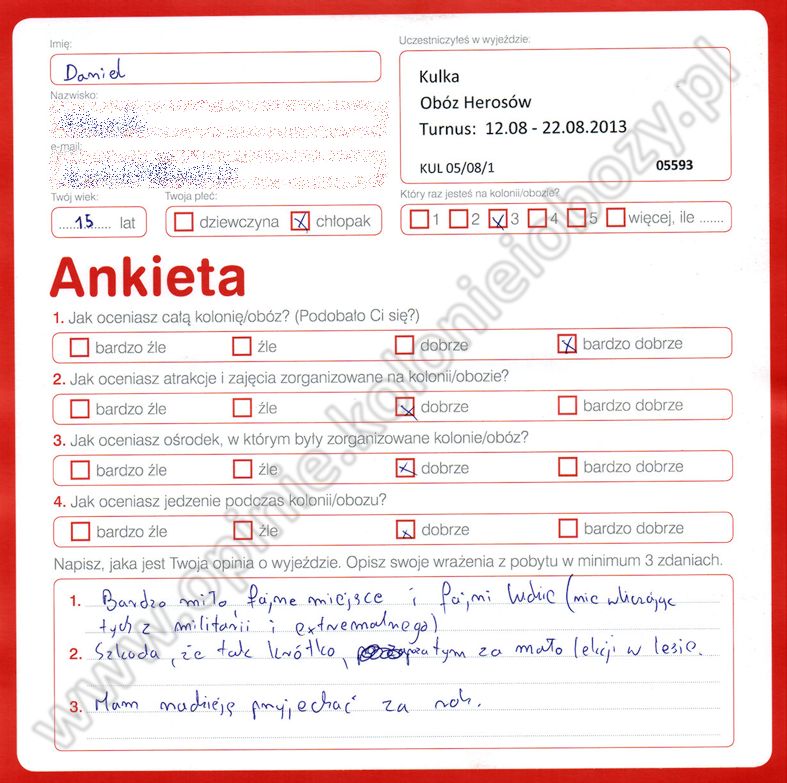 Imię:
Daniel
Nazwisko:
e-mail:
Twój wiek:
.....15..... lat
Twoja płeć:
dziewczyna x chłopak
Uczestniczyłeś w wyjeździe:
Kulka
Obóz Herosów
Turnus: 12.08 - 22.08.2013
KUL 05/08/1 05593
Który raz jesteś na kolonii/obozie?
1 2 x 3 4 5 więcej, ile .......
Ankieta
1. Jak oceniasz całą kolonię/obóz? (Podobało Ci się?)
bardzo źle źle dobrze x bardzo dobrze
2. Jak oceniasz atrakcje i zajęcia zorganizowane na kolonii/obozie?
bardzo źle źle x dobrze bardzo dobrze
3. Jak oceniasz ośrodek, w którym były zorganizowane kolonie/obóz?
bardzo źle źle x dobrze bardzo dobrze
4. Jak oceniasz jedzenie podczas kolonii/obozu?
bardzo źle źle x dobrze bardzo dobrze
Napisz, jaka jest Twoja opinia o wyjeździe. Opisz swoje wrażenia z pobytu w minimum 3 zdaniach.
1. Bardzo miło, fajne miejsce i fajni ludzie (nie wliczając
tych z militarii i extremalnego)
2. Szkoda, że tak krótko, za mało lekcji w lesie.
3. Mam nadzieję przyjechać za rok.
www.opinie.kolonieiobozy.pl